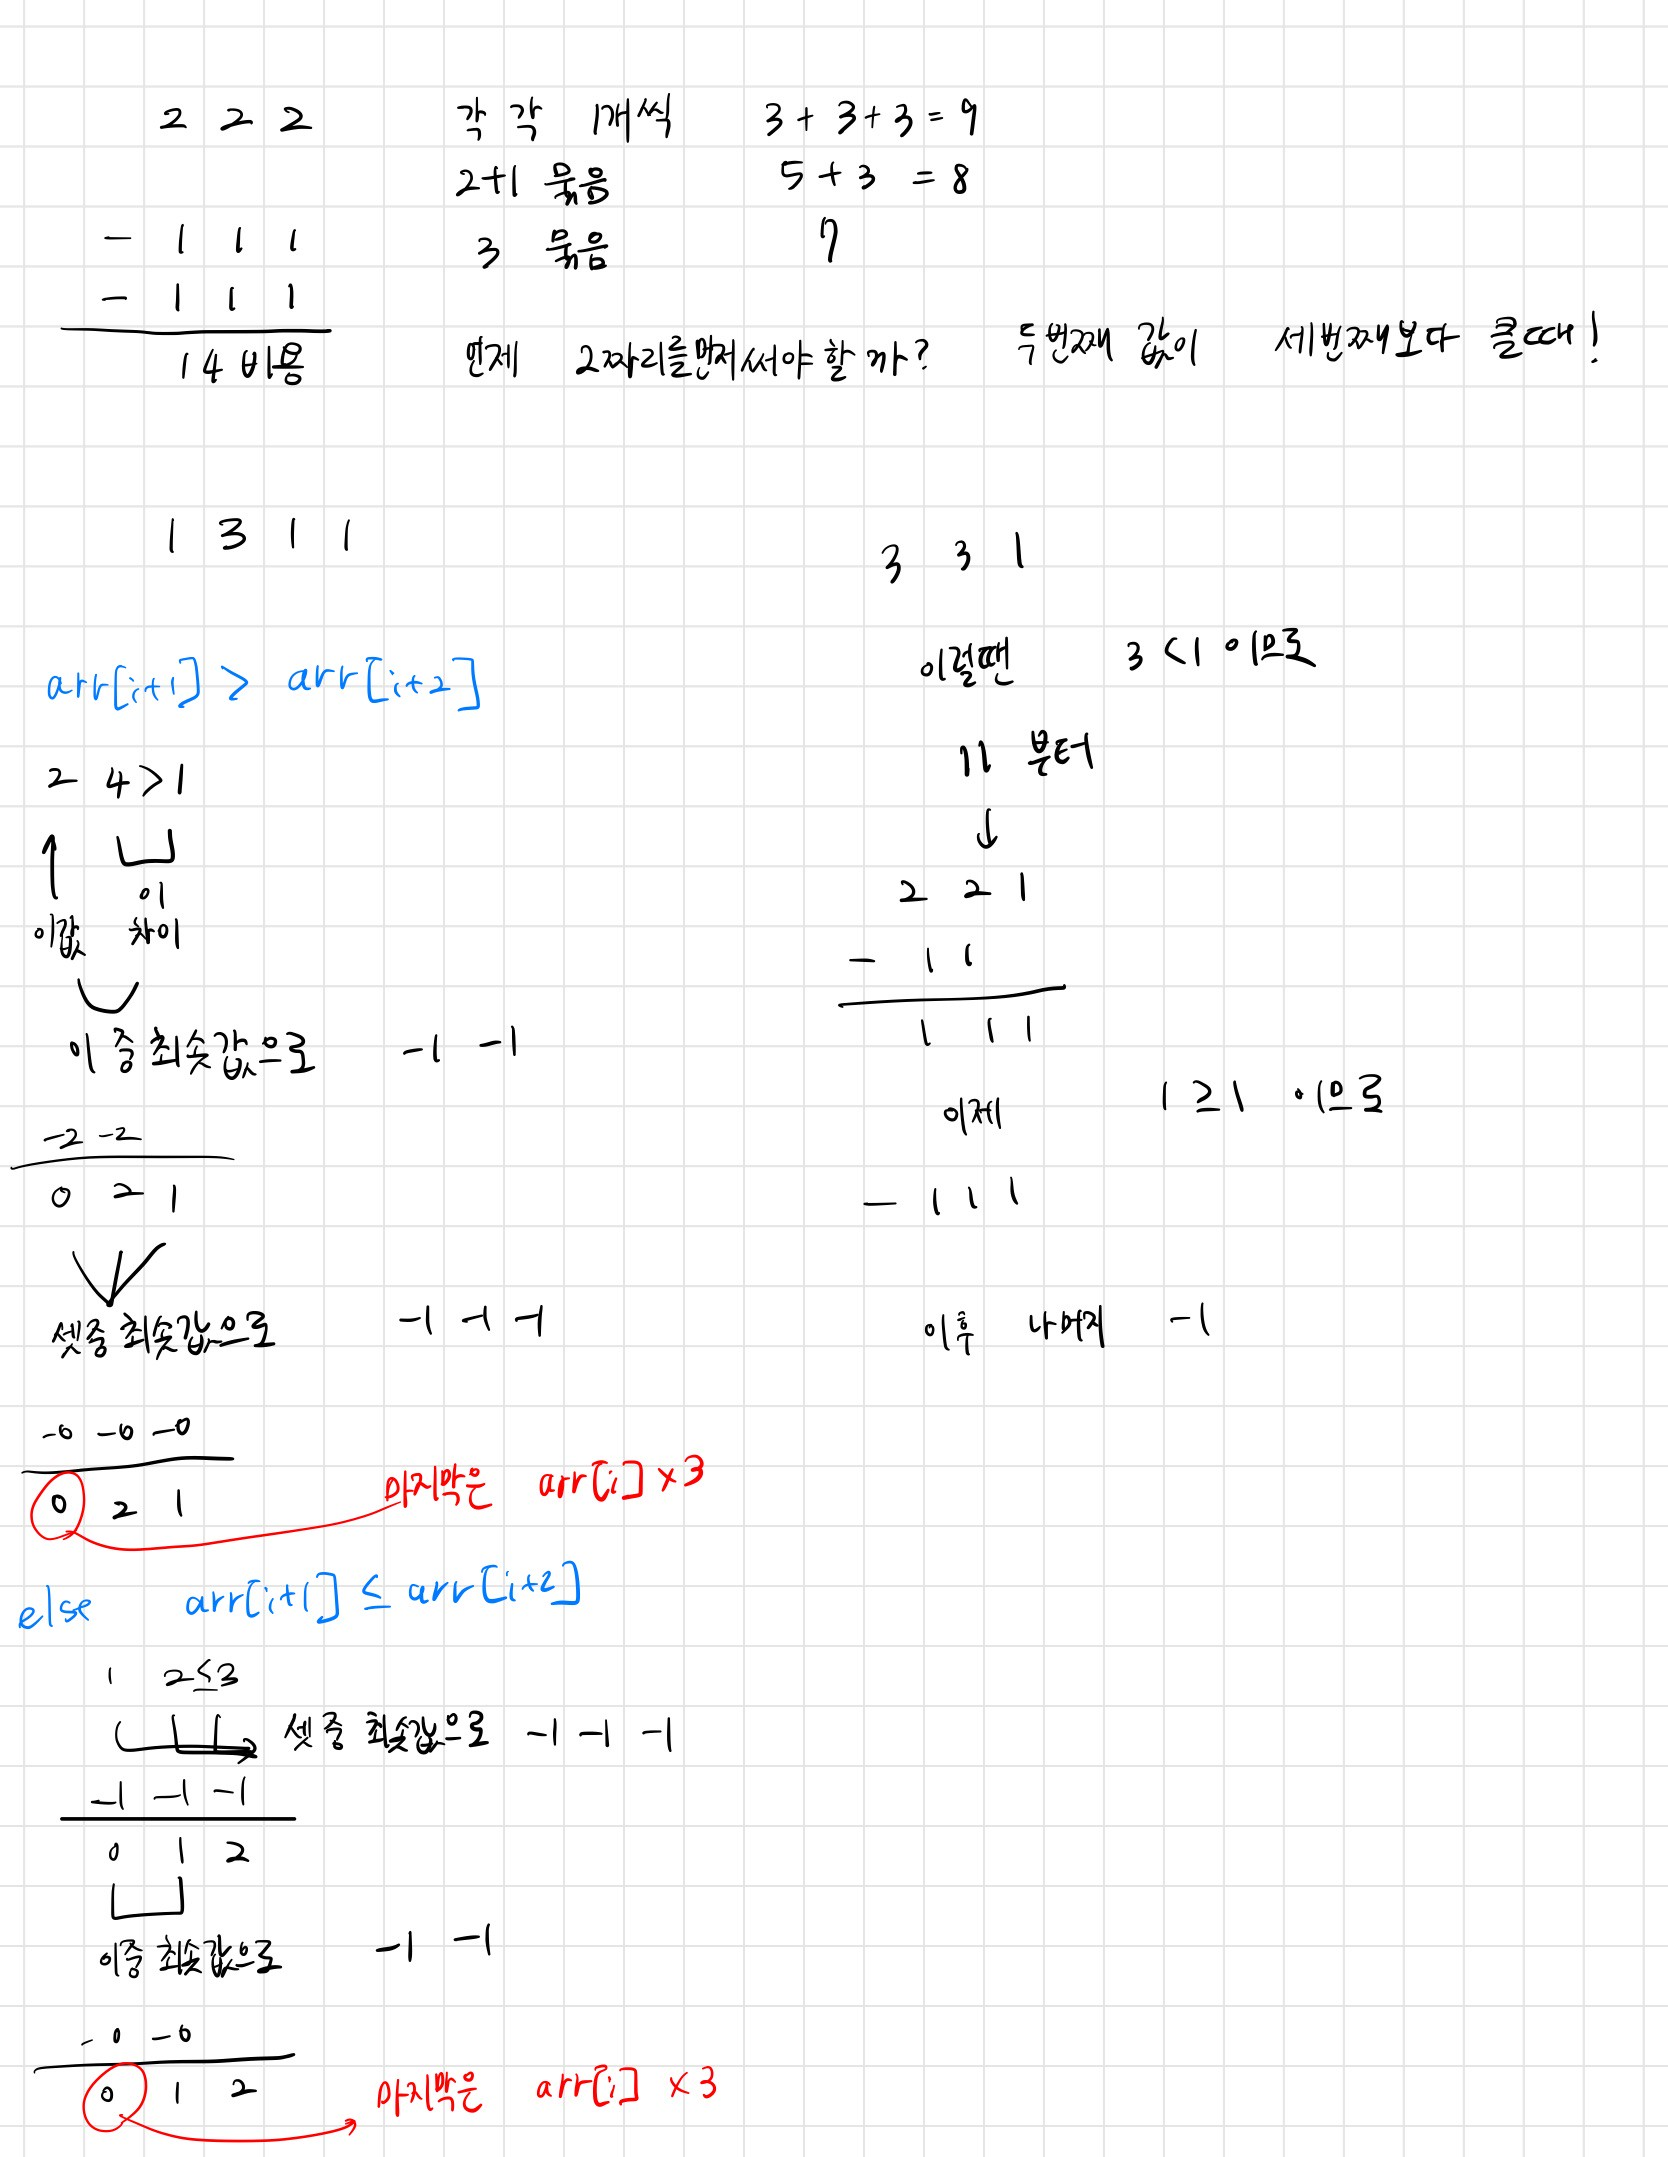 2 2 2
각 각 1개씩 3 + 3 + 3 = 9
2+1 묶음 5 + 3 = 8
3 묶음 7
- 1 1 1
- 1 1 1
14 비용
언제 2짜리를먼저써야할까? 두번째 값이 세번째보다 클때!
1 3 1 1
arr[i+1] > arr[i+2]
2 4 > 1
이값 이 차이
이 중 최솟값으로 -1 -1
-2 -2
0 2 1
셋중 최솟값으로 -1 -1 -1
-0 -0 -0
0 2 1
마지막은 arr[i] × 3
else arr[i+1] ≤ arr[i+2]
1 2 ≤ 3
셋 중 최솟값으로 -1 -1 -1
-1 -1 -1
0 1 2
이중 최솟값으로 -1 -1
-0 -0
0 1 2
마지막은 arr[i] × 3
3 3 1
이럴땐 3 < 1 이므로
11 부터
↓
2 2 1
- 1 1
1 1 1
이제 1 ≥ 1 이므로
- 1 1 1
이후 나머지 -1